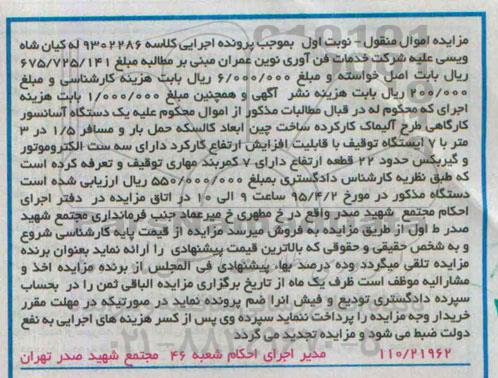 مزایده اموال منقول - نوبت اول  بموجب پرونده اجرایی کلاسه ۹۳۰۲۲۸۶ له کیان شاه
ویسی علیه شرکت خدمات فن آوری نوین عمران مبنی بر مطالبه مبلغ ۶۷۵/۷۲۵/۱۴۱
ریال بابت اصل خواسته و مبلغ ۶/۰۰۰/۰۰۰ ریال بابت هزینه کارشناسی و مبلغ
۲۰۰/۰۰۰ ریال بابت هزینه نشر  آگهی و همچنین مبلغ ۱/۰۰۰/۰۰۰ بابت هزینه
اجرای که محکوم له در قبال مطالبات مذکور از اموال محکوم علیه یک دستگاه آسانسور
کارگاهی طرح آلیماک کارکرده ساخت چین ابعاد کالسکه حمل بار و مسافر ۱/۵ در ۳
متر با ۷ ایستگاه توقیف با قابلیت افزایش ارتفاع کارکرد دارای سه ست الکتروموتور
و گیربکس حدود ۲۲ قطعه ارتفاع دارای ۷ کمربند مهاری توقیف و تعرفه کرده است
که طبق نظریه کارشناس دادگستری بمبلغ ۵۵۰/۰۰۰/۰۰۰ ریال ارزیابی شده است
دستگاه مذکور در مورخ ۹۵/۴/۲ ساعت ۹ الی ۱۰ در اتاق مزایده در  دفتر اجرای
احکام مجتمع  شهید صدر واقع در خ مطهری خ میرعماد جنب فرمانداری مجتمع شهید
صدر ط اول از طریق مزایده به فروش میرسد مزایده از قیمت پایه کارشناسی شروع
و به شخص حقیقی و حقوقی که بالاترین قیمت پیشنهادی  را ارائه نماید بعنوان برنده
مزایده تلقی میگردد وده درصد بها، پیشنهادی فی المجلس از برنده مزایده اخذ و
مشارالیه موظف است ظرف یک ماه از تاریخ برگزاری مزایده الباقی ثمن را در  بحساب
سپرده دادگستری تودیع و فیش انرا ضم پرونده نماید در صورتیکه در مهلت مقرر
خریدار وجه مزایده را پرداخت ننماید سپرده وی پس از کسر هزینه های اجرایی به نفع
دولت ضبط می شود و مزایده تجدید می گردد
۱۱۰/۲۱۹۶۲   مدیر اجرای احکام شعبه ۴۶  مجتمع شهید صدر تهران